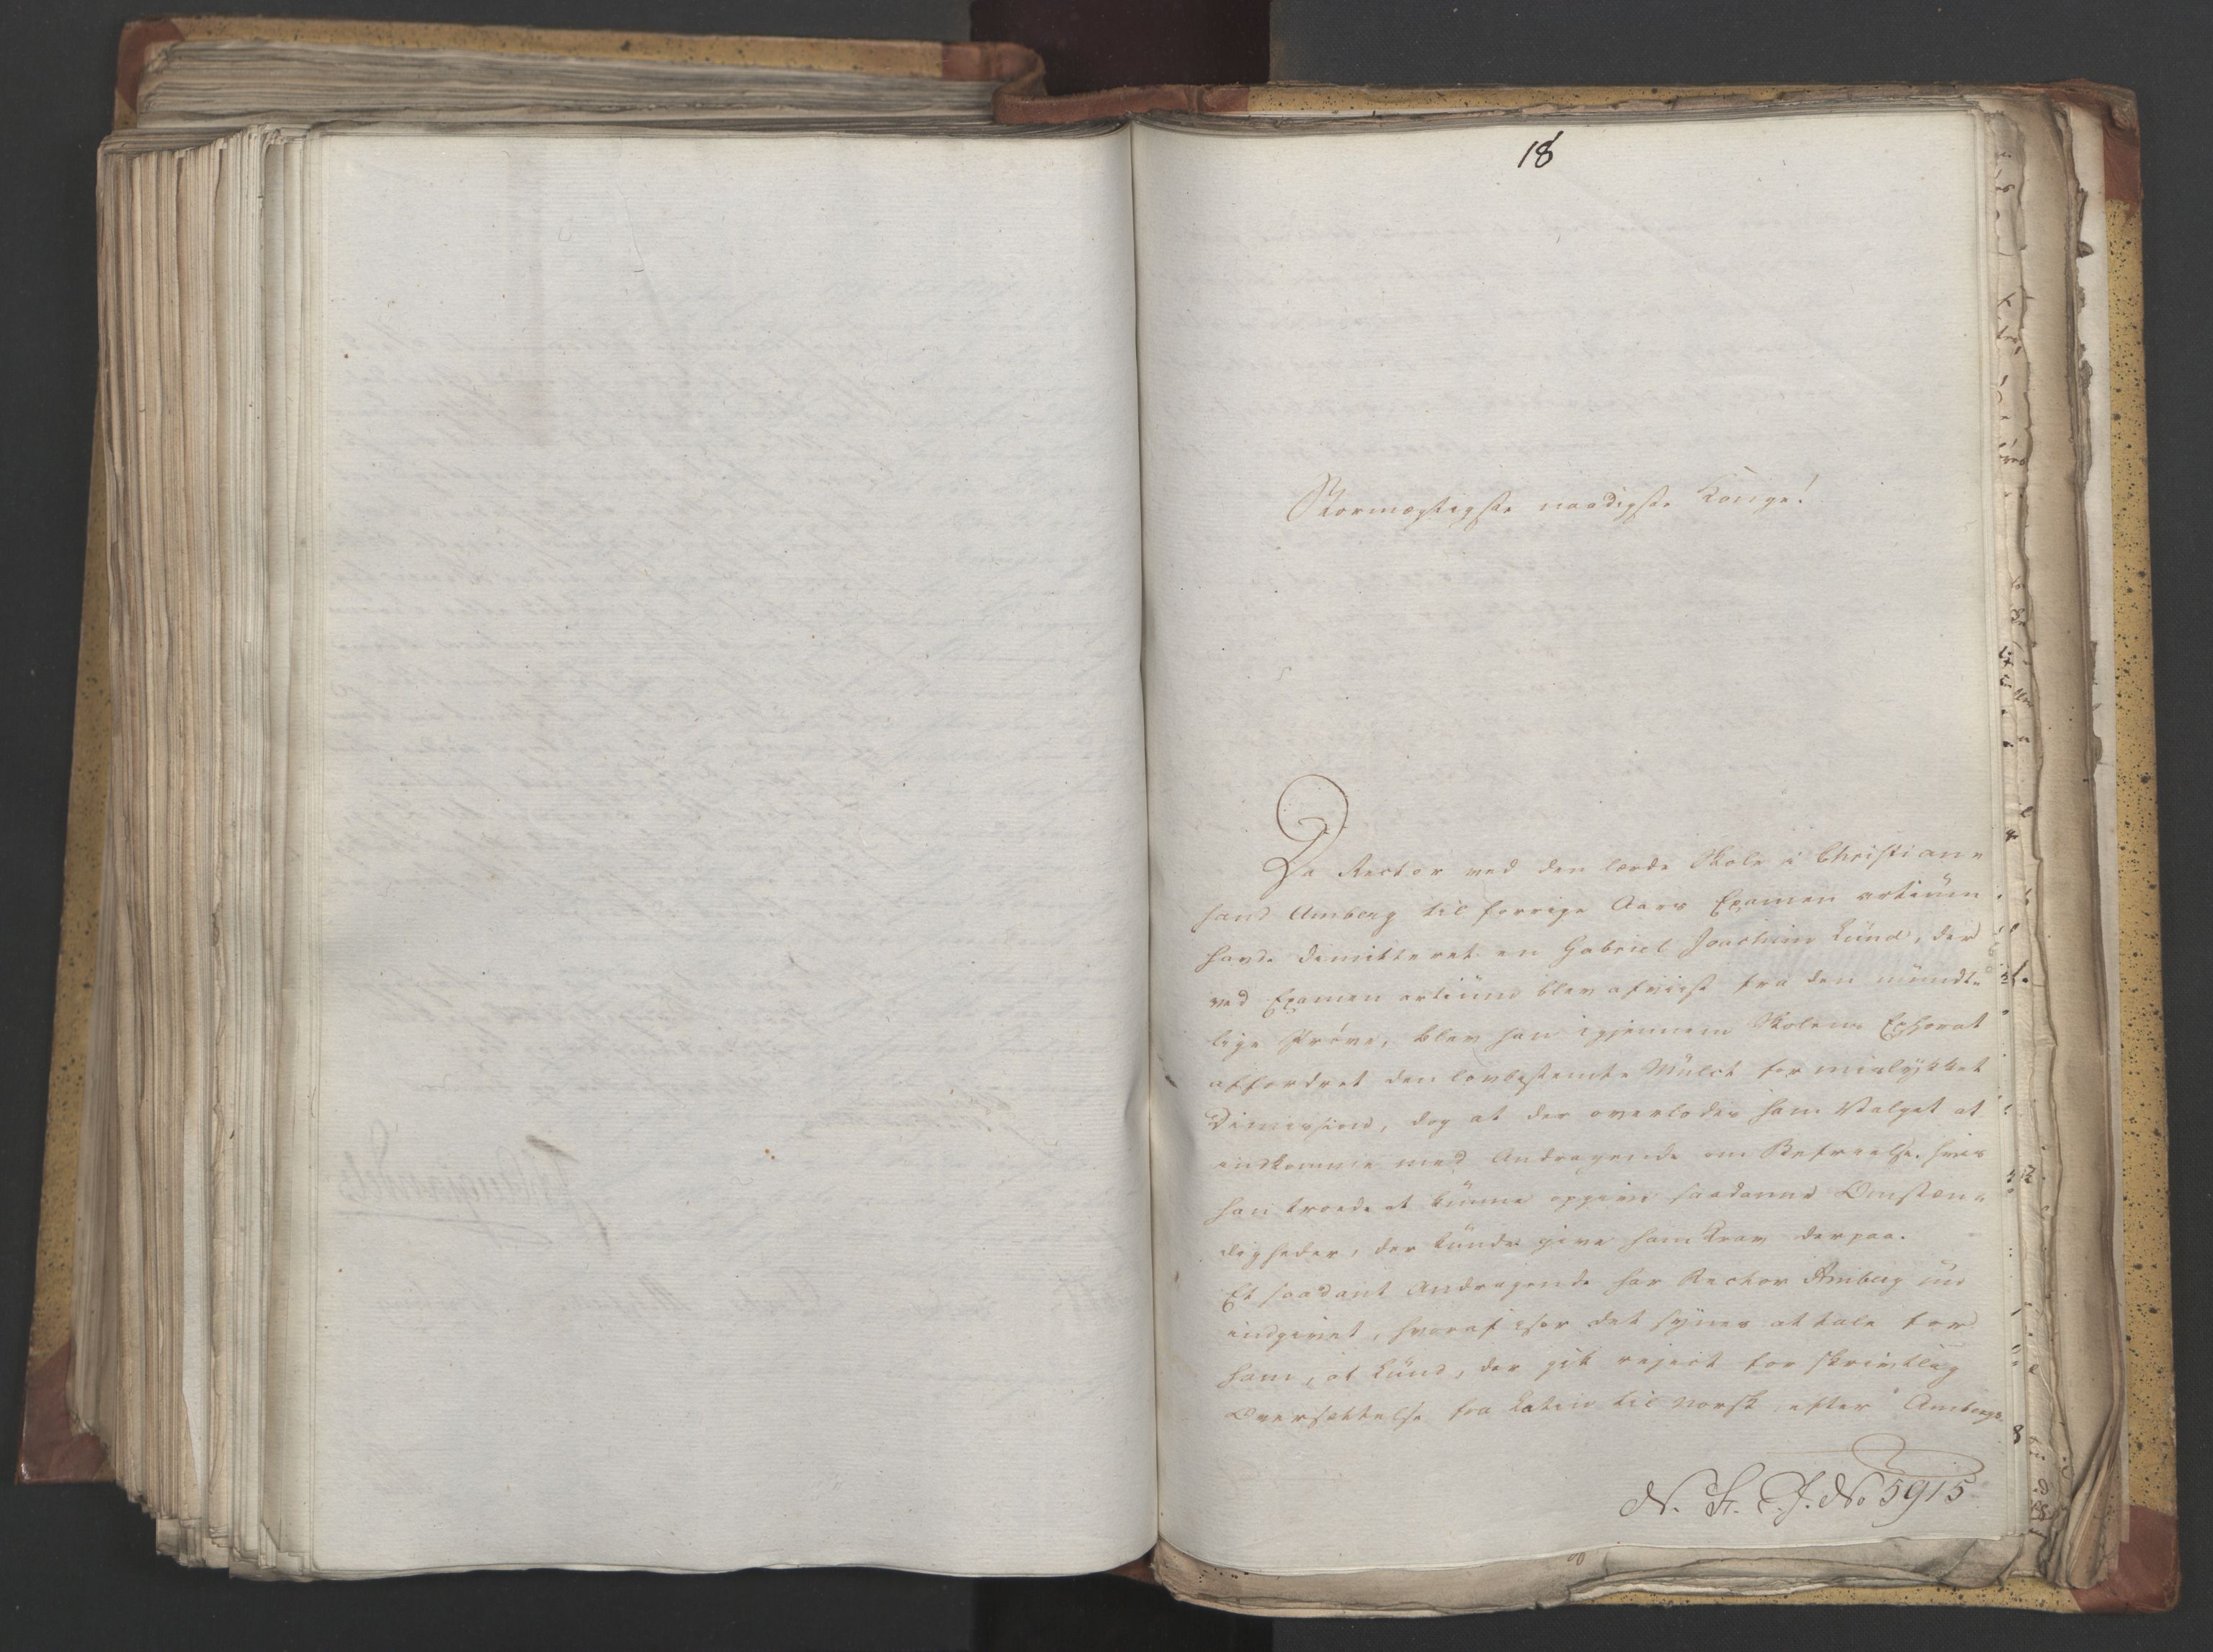 18
Stormægtigste naadigste Konge!
Da Rector ved den lærde Skole i Christian=
sand Amberg til forrige Aars Examen artium
havde demitteret en Gabriel Joachim Lund, der
ved Examen artium blev afviist fra den mundt=
lige Prøve, blev han igjennem Skolens Ephorat
affordret den lovbestemte Mulct for mislykket
Dimission, dog at der overlodes ham Valget at
indkomme med Andragende om Befrielse, hvis
han troede at kunne opgive saadanne Omstæn=
digheder, der kunde give ham Krav derpaa.
Et saadant Andragende har Rector Amberg nu
indgivet, hvoraf især det synes at tale for
ham, at Lund, der gik reject for skriftlig
Oversættelse fra Latin til Norsk, efter Ambergs
N. St. J. No 5915